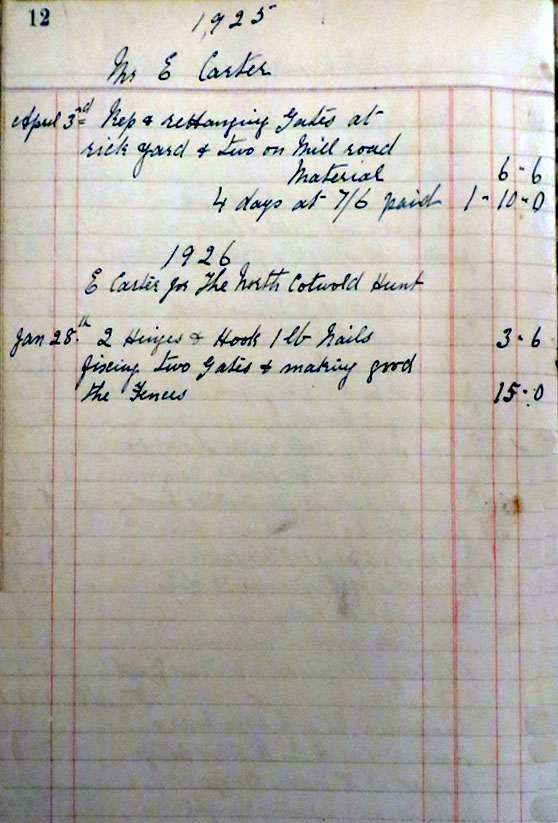 12
1925
Mr E Carter
April 3rd Rep & reHanging Gates at
rick yard & two on Mill road
Material 6-6
4 days at 7/6 paid 1-10-0
1926
E Carter for The North Cotwold Hunt
Jan 28.th 2 Hinges & Hook 1 lb Nails 3-6
fixing two Gates & making good
the Fences 15-0